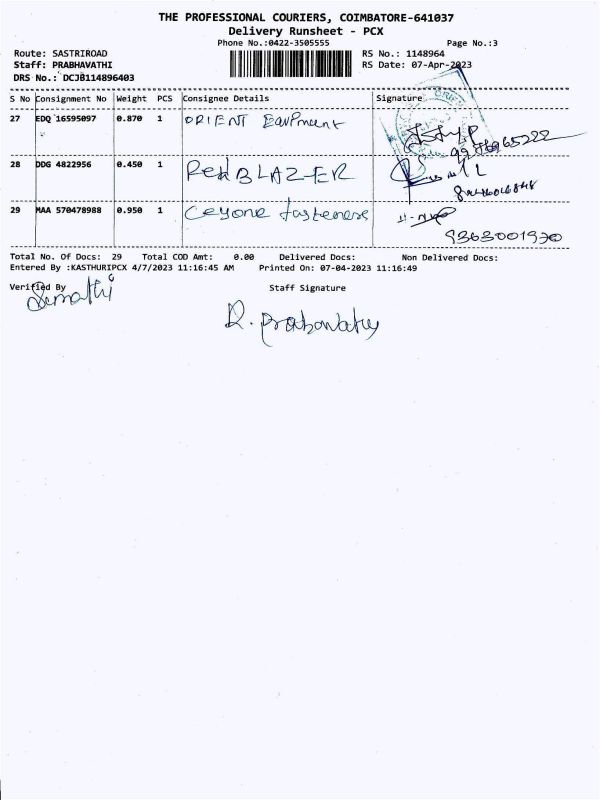 THE PROFESSIONAL COURIERS, COIMBATORE-641037
Delivery Runsheet - PCX
Phone No.:0422-3505555 Page No.:3
Route: SASTRIROAD RS No.: 1148964
Staff: PRABHAVATHI RS Date: 07-Apr-2023
DRS No.: DCJB114896403
S No Consignment No Weight PCS Consignee Details Signature
27 EDQ 16595097 0.870 1 ORIENT Equipment
28 DDG 4822956 0.450 1 Red BLAZER
29 MAA 570478988 0.950 1 Ceyone fasteners
9363001930
Total No. Of Docs: 29 Total COD Amt: 0.00 Delivered Docs: Non Delivered Docs:
Entered By :KASTHURIPCX 4/7/2023 11:16:45 AM Printed On: 07-04-2023 11:16:49
Verified By Staff Signature